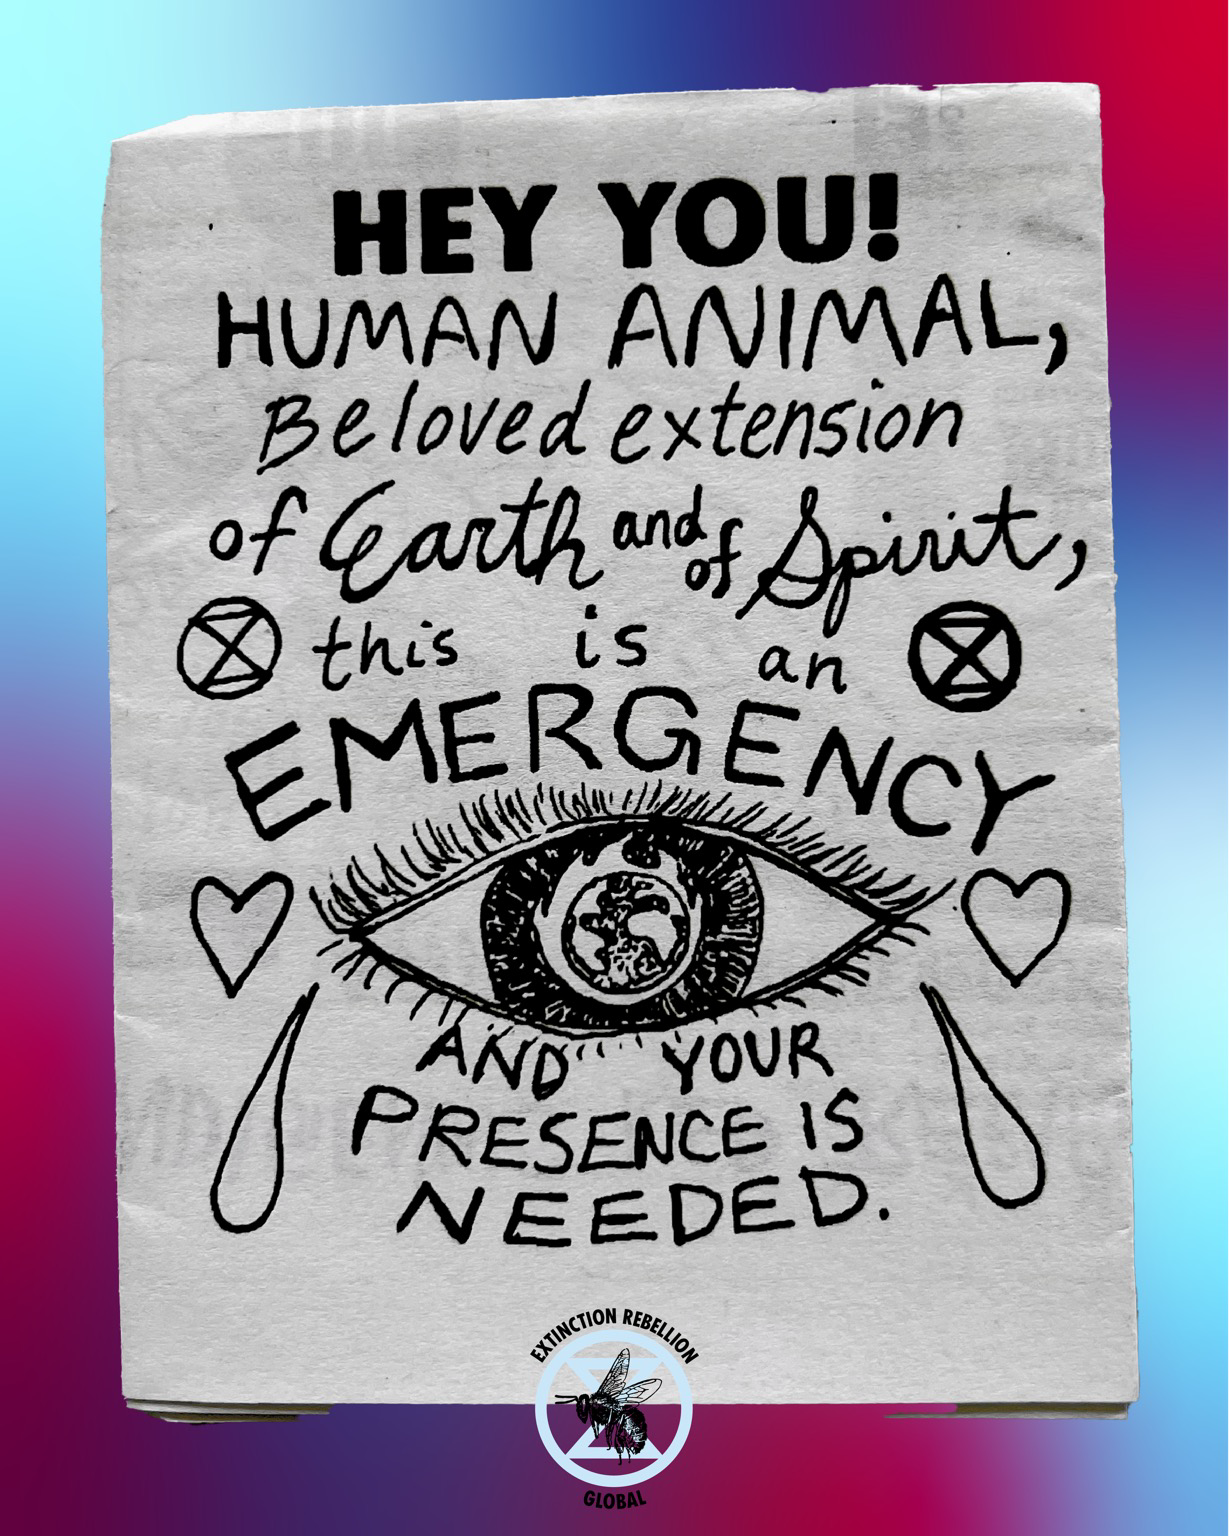 HEY YOU!
HUMAN ANIMAL,
Beloved extension
of Earth and of Spirit,
this is an
EMERGENCY
AND YOUR
PRESENCE IS
NEEDED.
EXTINCTION REBELLION
GLOBAL